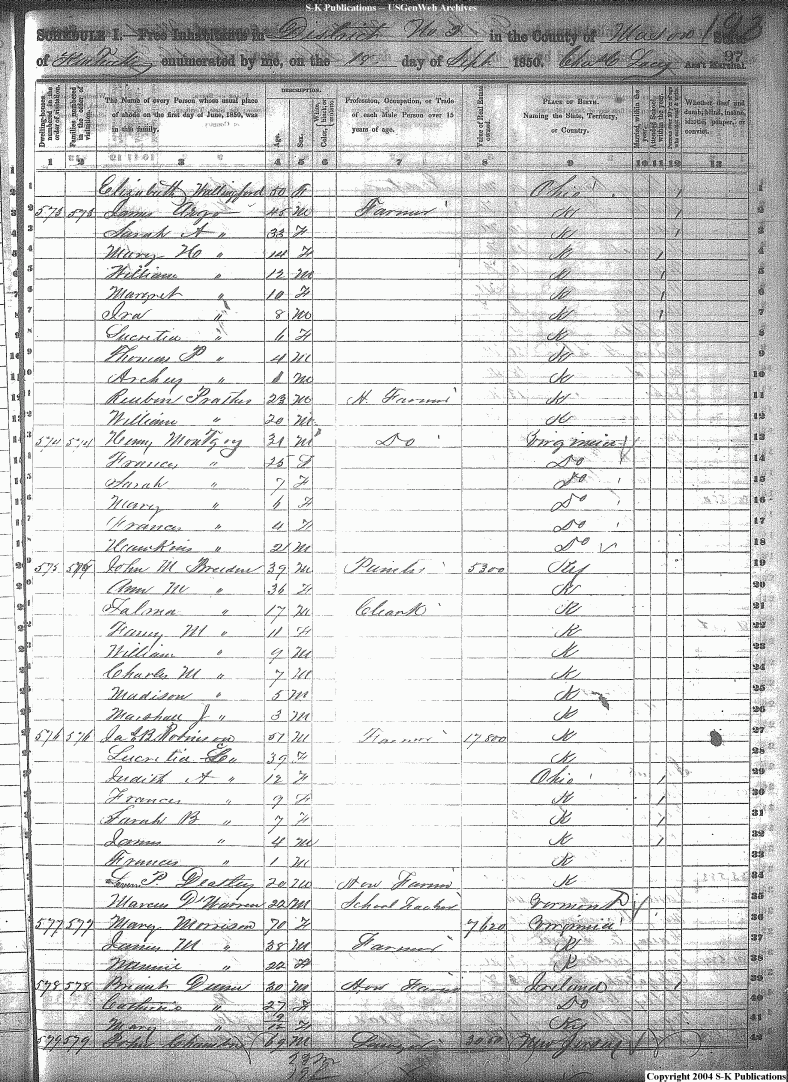 S-K Publications -- USGenWeb Archives
193
SCHEDULE I.—Free Inhabitants in District No 2 in the County of Mason State
of Kentucky enumerated by me, on the day of Sept 1850. Ass't Marshal. 97
DESCRIPTION.
Dwelling-houses numbered in the order of visitation. Families numbered in the order of visitation. The Name of every Person whose usual place of abode on the first day of June, 1850, was in this family. Age. Sex. Color, White, black, or mulatto. Profession, Occupation, or Trade of each Male Person over 15 years of age. Value of Real Estate owned. PLACE OF BIRTH. Naming the State, Territory, or Country. Married within the year. Attended School within the year. Whether deaf and dumb, blind, insane, idiotic, pauper, or convict.
1 2 3 4 5 6 7 8 9 10 11 12 13
1 Elizabeth Wallingford 50 F Ohio 1
2 573 573 James Argo 45 M Farmer K 2
3 Sarah A " 33 F K 3
4 Mary H " 14 F K 4
5 William " 12 M K 5
6 Margret " 10 F K 6
7 Ira " 8 M K 7
8 Lucretia " 6 F K 8
9 Thomas P " 4 M K 9
10 Archey " M K 10
11 Reuben Prather 23 M H. Farmer K 11
12 William " 20 M K 12
13 574 574 Henry Montgoy 31 M Do Virginia 13
14 Frances " 25 F Do 14
15 Sarah " 7 F Do 15
16 Mary " 6 F Do 16
17 Frances " 4 F Do 17
18 Hawkins " 2 M Do 18
19 575 John M Breeden 39 M Painter 5300 Ky 19
20 Ann M " 36 F K 20
21 " 17 M Cleark K 21
22 Fanny M " 11 F K 22
23 William " 9 M K 23
24 Charles M " 7 M K 24
25 Madison " 5 M K 25
26 Marshall J " 3 M K 26
27 576 576 Robinson 51 M Farmer 17,800 K 27
28 Lucretia " 39 F K 28
29 Judith A " 12 F Ohio 29
30 Frances " 9 F K 30
31 Sarah B " 7 F K 31
32 James " 4 M K 32
33 Frances " 1 M K 33
34 P. Deatley 20 M Farmer K 34
35 Marcus D Warren 22 M School Teacher Vermont 35
36 577 577 Mary Morrison 70 F 7620 Virginia 36
37 James M " 38 M Farmer K 37
38 " 22 F K 38
39 578 578 Briant Dunn 30 M Farmer Ireland 39
40 Catharine " 27 F Do 40
41 Mary " F Ky 41
42 579 579 John 69 M New Jersey 42
Copyright 2004 S-K Publications